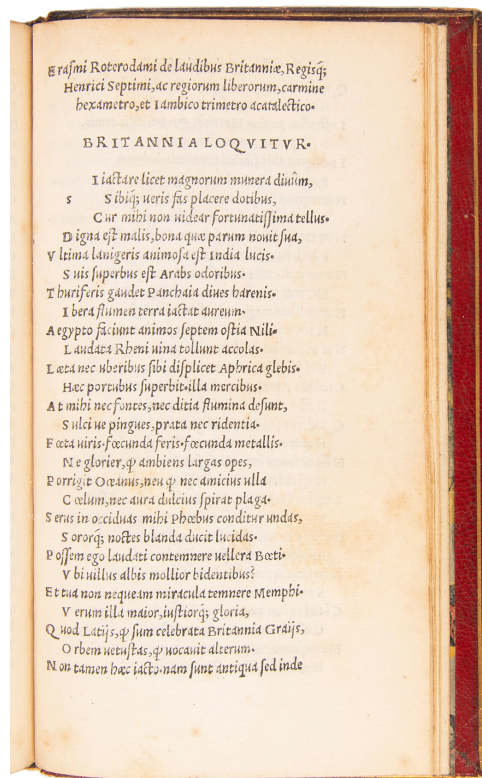 Erasmi Roterodami de laudibus Britanniæ, Regisq;
Henrici Septimi, ac regiorum liberorum, carmine
hexametro, et Iambico trimetro acatalectico.
BRITANNIA LOQVITVR.
I iactare licet magnorum munera diuûm,
s Sibiq; ueris fas placere dotibus,
Cur mihi non uidear fortunatissima tellus.
Digna est malis, bona quæ parum nouit sua,
Vltima lanigeris animosa est India lucis.
Suis superbus est Arabs odoribus.
Thuriferis gaudet Panchaia diues harenis.
Ibera flumen terra iactat aureum.
Aegypto faciunt animos septem ostia Nili.
Laudata Rheni uina tollunt accolas.
Læta nec uberibus sibi displicet Aphrica glebis.
Hæc portubus superbit. illa mercibus.
At mihi nec fontes, nec ditia flumina desunt,
Sulci ue pingues, prata nec ridentia.
Fœta uiris. fœcunda feris. fœcunda metallis.
Ne glorier, ꝙ ambiens largas opes,
Porrigit Oceanus, neu ꝙ nec amicius ulla
Cœlum, nec aura dulcius spirat plaga.
Serus in occiduas mihi Phœbus conditur undas,
Sororq; noctes blanda ducit lucidas.
Possem ego laudati contemnere uellera Bœti.
Vbi uillus albis mollior bidentibus?
Et tua non nequeam miracula temnere Memphi.
Verum illa maior, iustiorq; gloria,
Quod Latijs, ꝙ sum celebrata Britannia Graijs,
Orbem uetustas, ꝙ uocauit alterum.
Non tamen hæc iacto. nam sunt antiqua sed inde